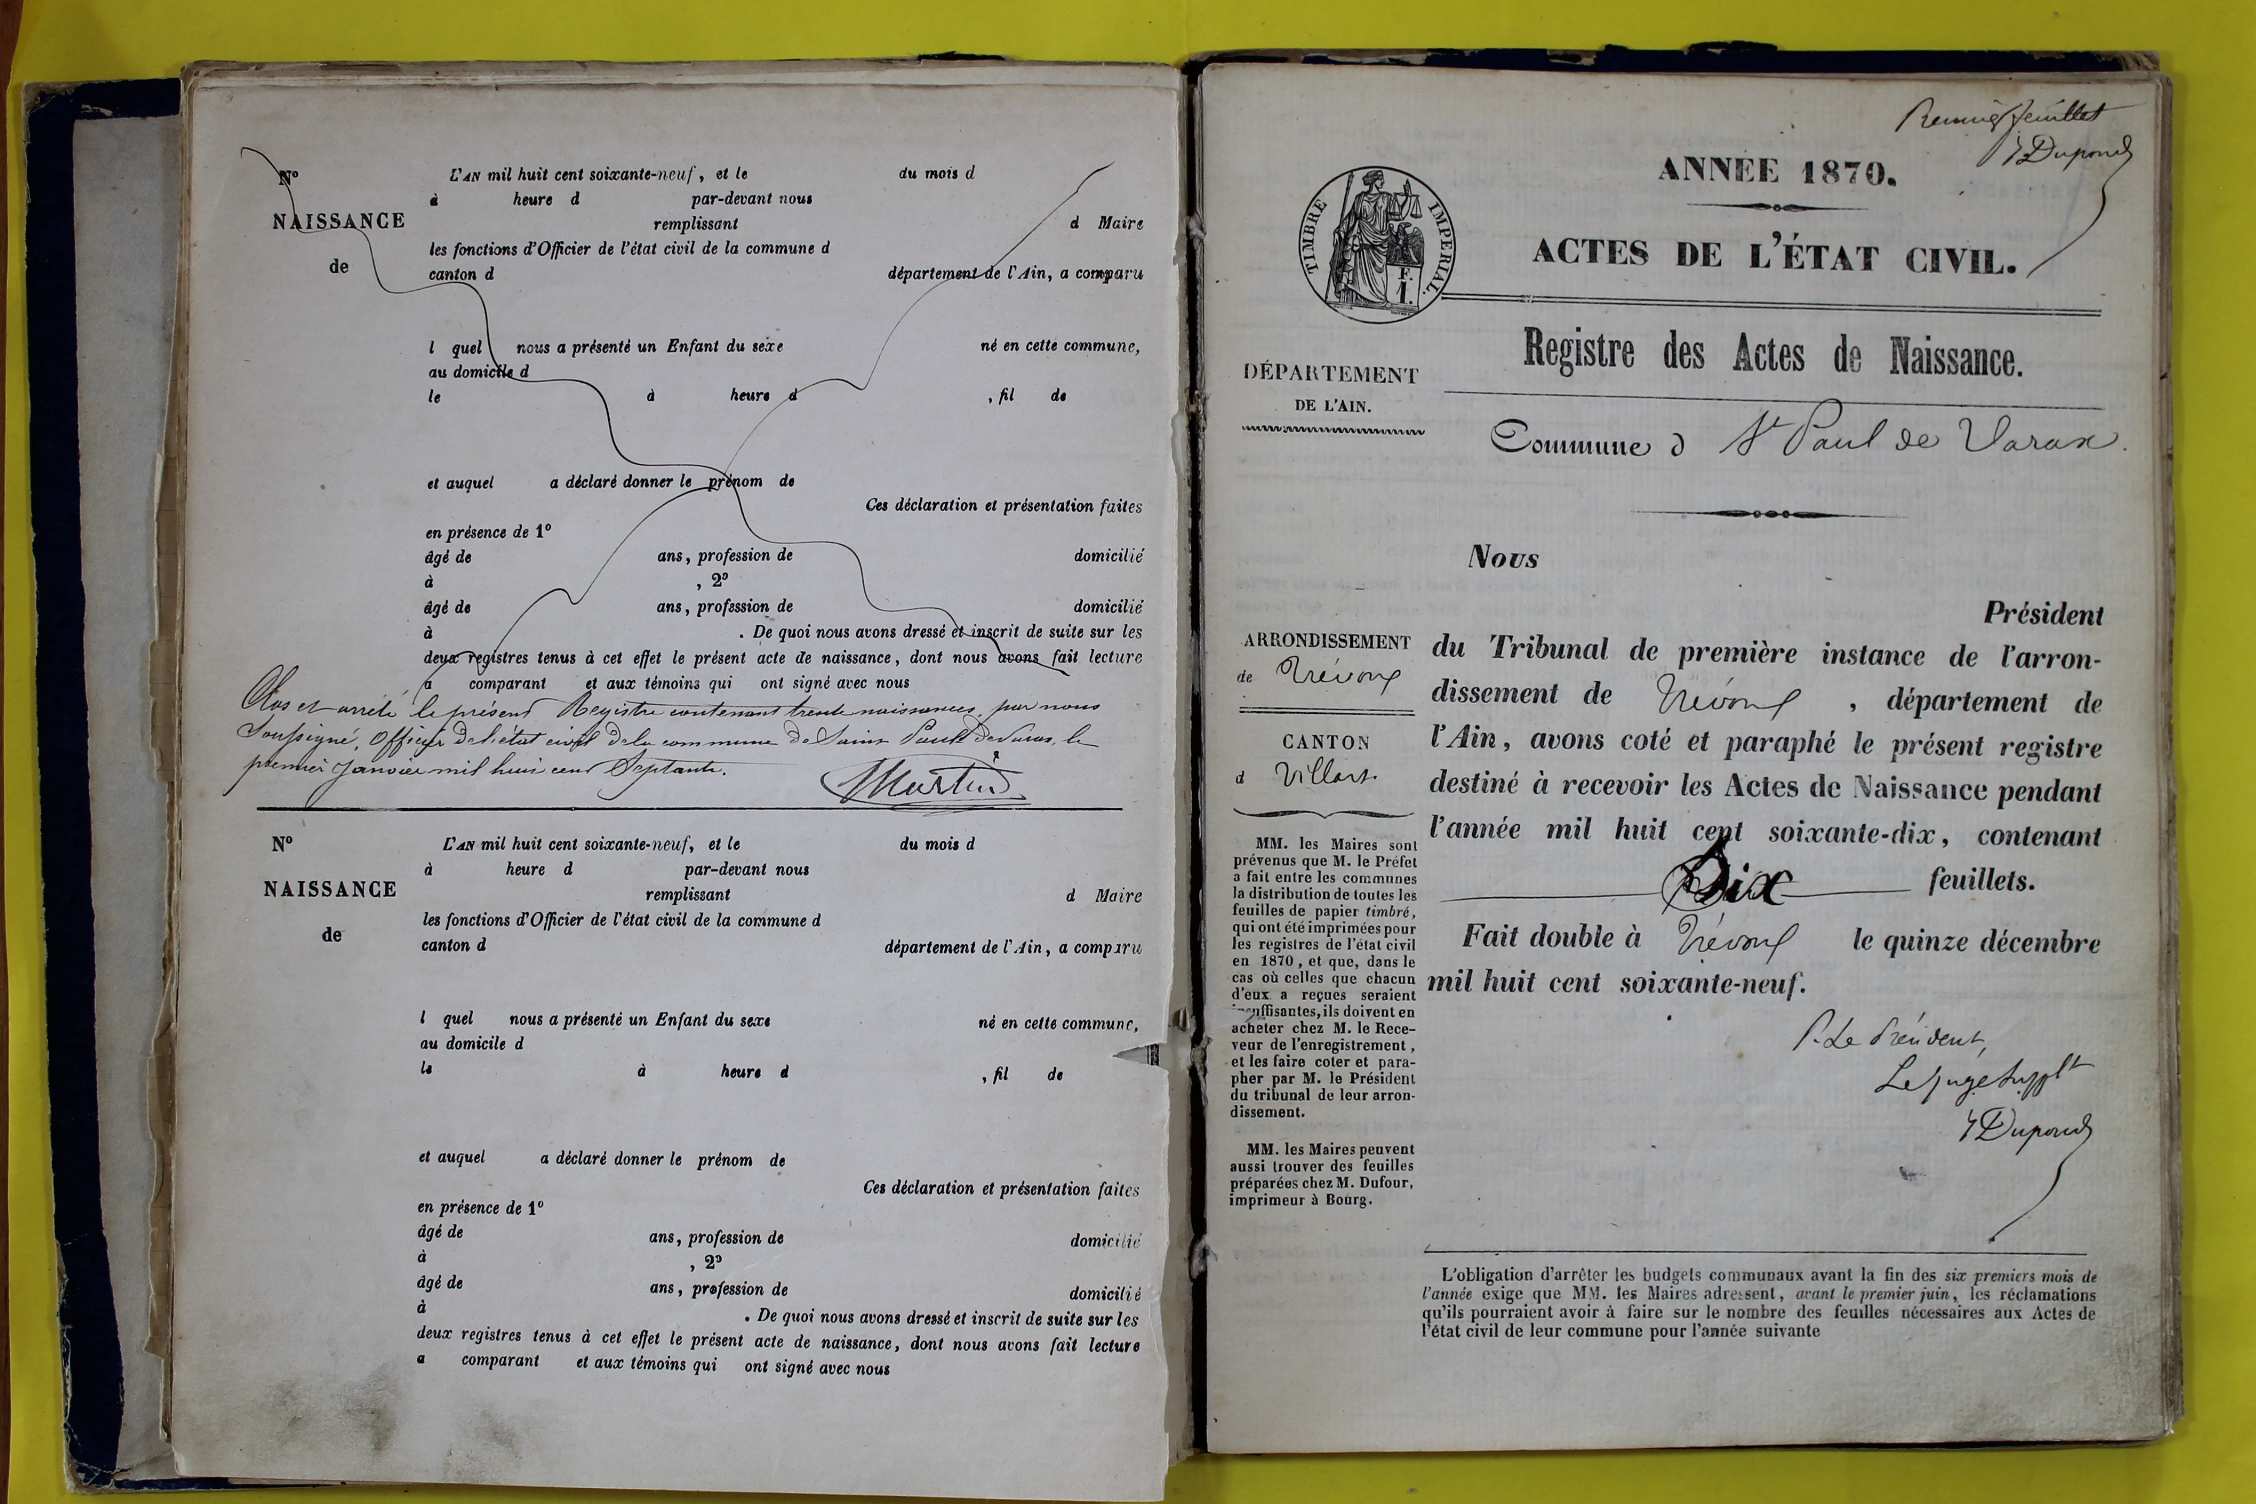 N° L'AN mil huit cent soixante-neuf, et le du mois d
à heure d par-devant nous
NAISSANCE remplissant d Maire
les fonctions d'Officier de l'état civil de la commune d
de
canton d département de l'Ain, a comparu
l quel nous a présenté un Enfant du sexe né en cette commune,
au domicile d
le à heure d , fil de
et auquel a déclaré donner le prénom de
Ces déclaration et présentation faites
en présence de 1°
âgé de ans, profession de domicilié
à , 2°
âgé de ans, profession de domicilié
à . De quoi nous avons dressé et inscrit de suite sur les
deux registres tenus à cet effet le présent acte de naissance, dont nous avons fait lecture
a comparant et aux témoins qui ont signé avec nous
Clos et arrêté le présent Registre contenant trente naissances par nous
Soussigné, Officier de l'état civil de la commune de Saint Paul de Varax, le
premier Janvier mil huit cent Septante.
Martin
N° L'AN mil huit cent soixante-neuf, et le du mois d
à heure d par-devant nous
NAISSANCE remplissant d Maire
les fonctions d'Officier de l'état civil de la commune d
de
canton d département de l'Ain, a comparu
l quel nous a présenté un Enfant du sexe né en cette commune,
au domicile d
le à heure d , fil de
et auquel a déclaré donner le prénom de
Ces déclaration et présentation faites
en présence de 1°
âgé de ans, profession de domicilié
à , 2°
âgé de ans, profession de domicilié
à . De quoi nous avons dressé et inscrit de suite sur les
deux registres tenus à cet effet le présent acte de naissance, dont nous avons fait lecture
a comparant et aux témoins qui ont signé avec nous
Premier feuillet
Dupond
ANNÉE 1870.
TIMBRE IMPERIAL.
F.
1.
ACTES DE L'ÉTAT CIVIL.
Registre des Actes de Naissance.
DÉPARTEMENT
DE L'AIN.
Commune d St Paul de Varax.
Nous
Président
ARRONDISSEMENT
de Trévoux
CANTON
d Villars.
MM. les Maires sont
prévenus que M. le Préfet
a fait entre les communes
la distribution de toutes les
feuilles de papier timbré,
qui ont été imprimées pour
les registres de l'état civil
en 1870, et que, dans le
cas où celles que chacun
d'eux a reçues seraient
insuffisantes, ils doivent en
acheter chez M. le Rece-
veur de l'enregistrement,
et les faire coter et para-
pher par M. le Président
du tribunal de leur arron-
dissement.
MM. les Maires peuvent
aussi trouver des feuilles
préparées chez M. Dufour,
imprimeur à Bourg.
du Tribunal de première instance de l'arron-
dissement de Trévoux , département de
l'Ain, avons coté et paraphé le présent registre
destiné à recevoir les Actes de Naissance pendant
l'année mil huit cent soixante-dix, contenant
Dix feuillets.
Fait double à Trévoux le quinze décembre
mil huit cent soixante-neuf.
P. Le Président,
Le Juge Supplt
Dupond
L'obligation d'arrêter les budgets communaux avant la fin des six premiers mois de
l'année exige que MM. les Maires adressent, avant le premier juin, les réclamations
qu'ils pourraient avoir à faire sur le nombre des feuilles nécessaires aux Actes de
l'état civil de leur commune pour l'année suivante